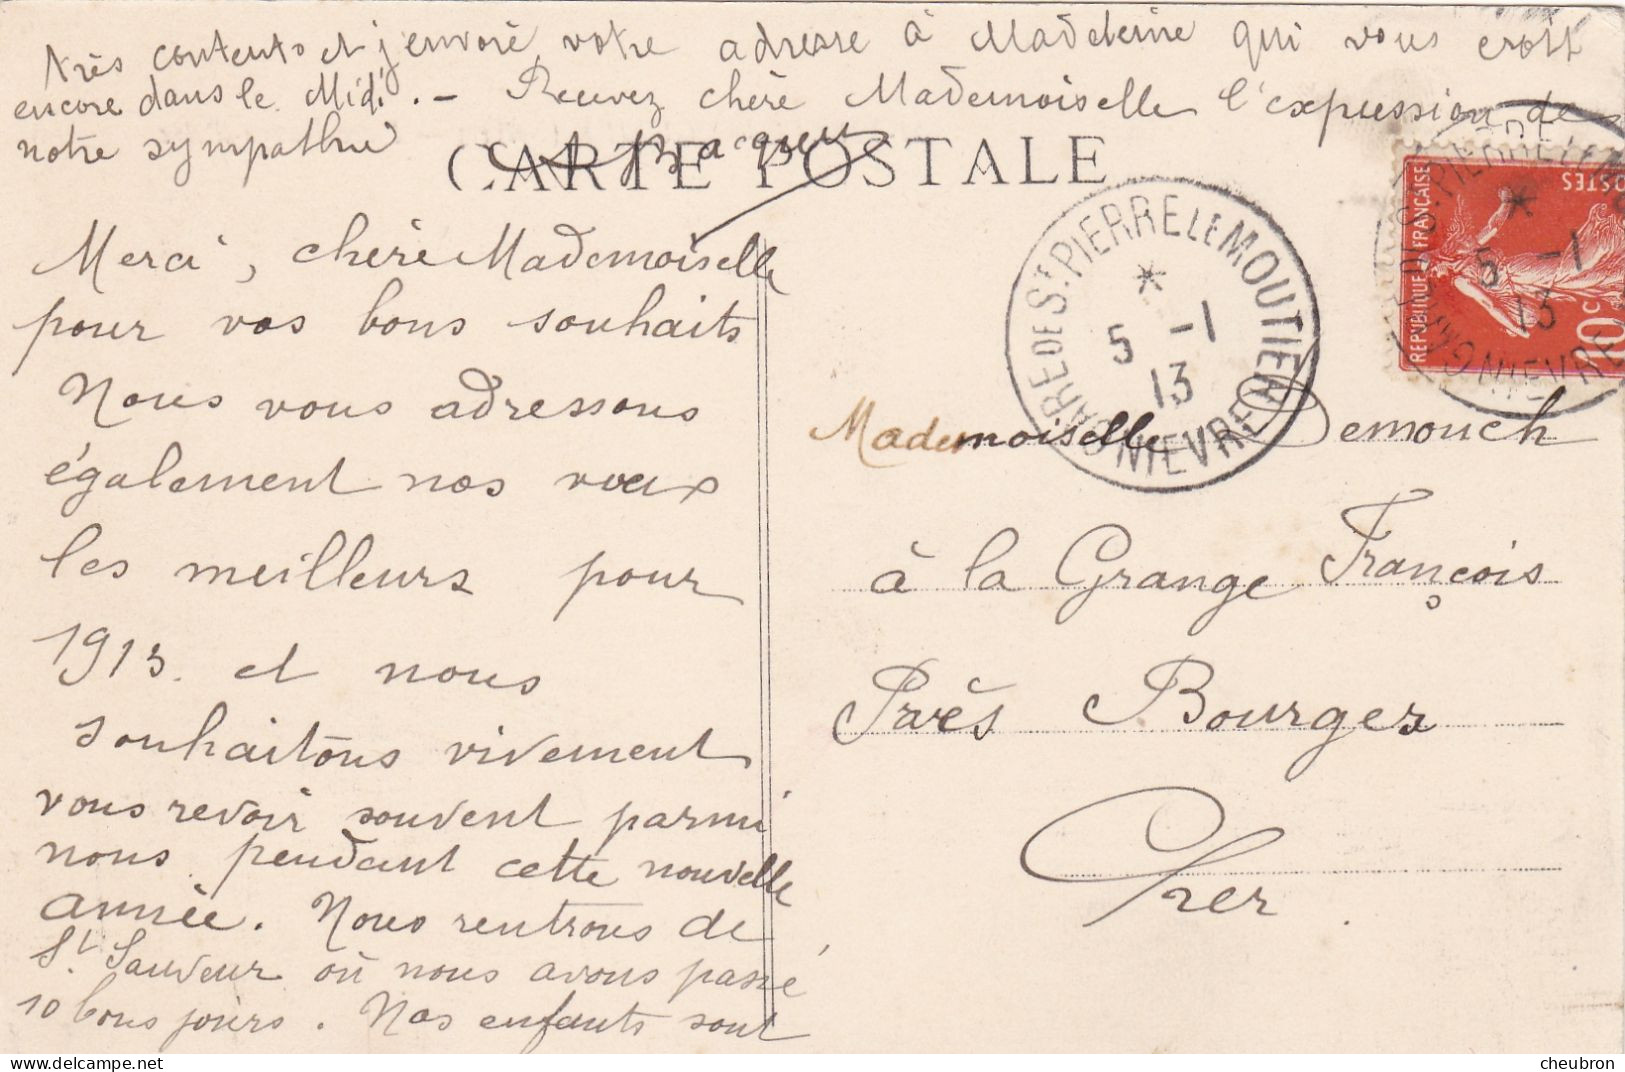 Très contents et j'envoie votre adresse à Madeleine qui vous croit
encore dans le Midi. - Recevez chère Mademoiselle l'expression de
notre sympathie
CARTE POSTALE
Merci, chère Mademoiselle
pour vos bons souhaits
Nous vous adressons
également nos vœux
les meilleurs pour
1913. et nous
souhaitons vivement
vous revoir souvent parmi
nous pendant cette nouvelle
année. Nous rentrons de
St. Sauveur où nous avons passé
10 bons jours. Nos enfants sont
GARE DE ST PIERRE LE MOUTIER
*
5 -1
13
NIEVRE
REPUBLIQUE FRANÇAISE
POSTES
10c
GARE DE ST PIERRE LE MOUTIER
*
5 -1
13
NIEVRE
Mademoiselle Demouch
à la Grange François
Près Bourges
Cher.
cheubron - www.delcampe.net